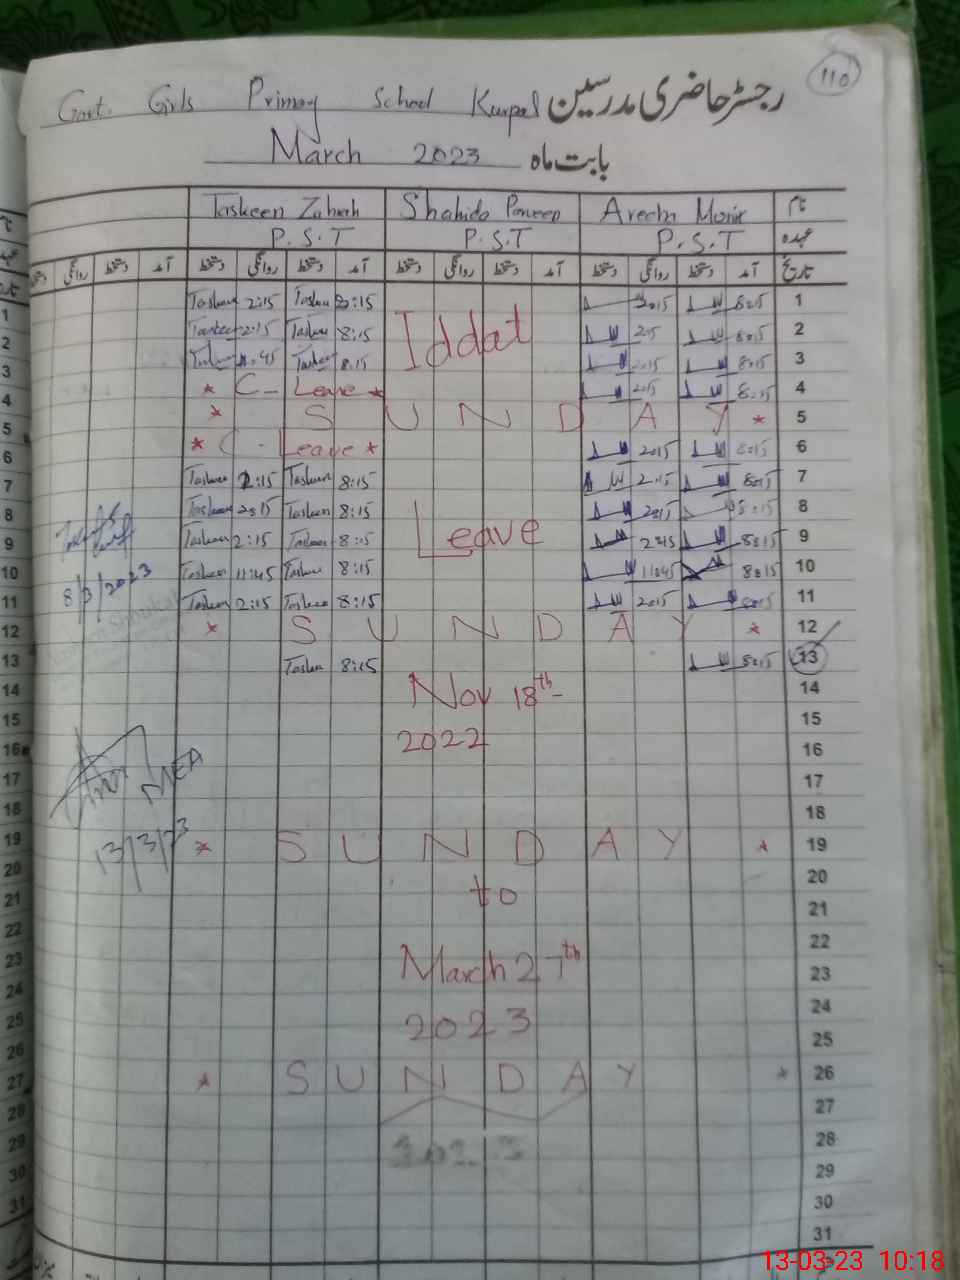 110
Govt. Girls Primary School Kurpal رجسٹر حاضری مدرسین
March 2023 بابت ماہ
Taskeen Zahrah Shahida Parveen نام
P.S.T P.S.T P.S.T عہدہ
دستخط روانگی دستخط آمد دستخط روانگی دستخط آمد دستخط روانگی دستخط آمد دستخط روانگی دستخط آمد تاریخ
2:15 2:15 8:15 1
2:15 8:15 Iddat 8:15 2
8:15 2:15 8:15 3
* C - Leave * 2:15 8:15 4
* S U N D A Y * 5
* C - Leave * 2:15 8:15 6
Taskeen 2:15 Taskeen 8:15 2:15 8:15 7
Taskeen 2:15 Taskeen 8:15 2:15 8:15 8
Taskeen 2:15 Taskeen 8:15 Leave 2:15 8:15 9
Taskeen 11:45 Taskeen 8:15 11:45 8:15 10
8/3/2023
Taskeen 2:15 Taskeen 8:15 2:15 8:15 11
* S U N D A Y * 12
8:15 8:15 13
Nov 18th 14
15
2022 16
MEA
17
18
13/3/23
* S U N D A Y * 19
20
to 21
22
March 27th 23
24
2023 25
* S U N D A Y * 26
27
28
29
30
31
1
2
3
4
5
6
7
8
9
10
11
12
13
14
15
16
17
18
19
20
21
22
23
24
25
26
27
28
29
30
31
13-03-23 10:18